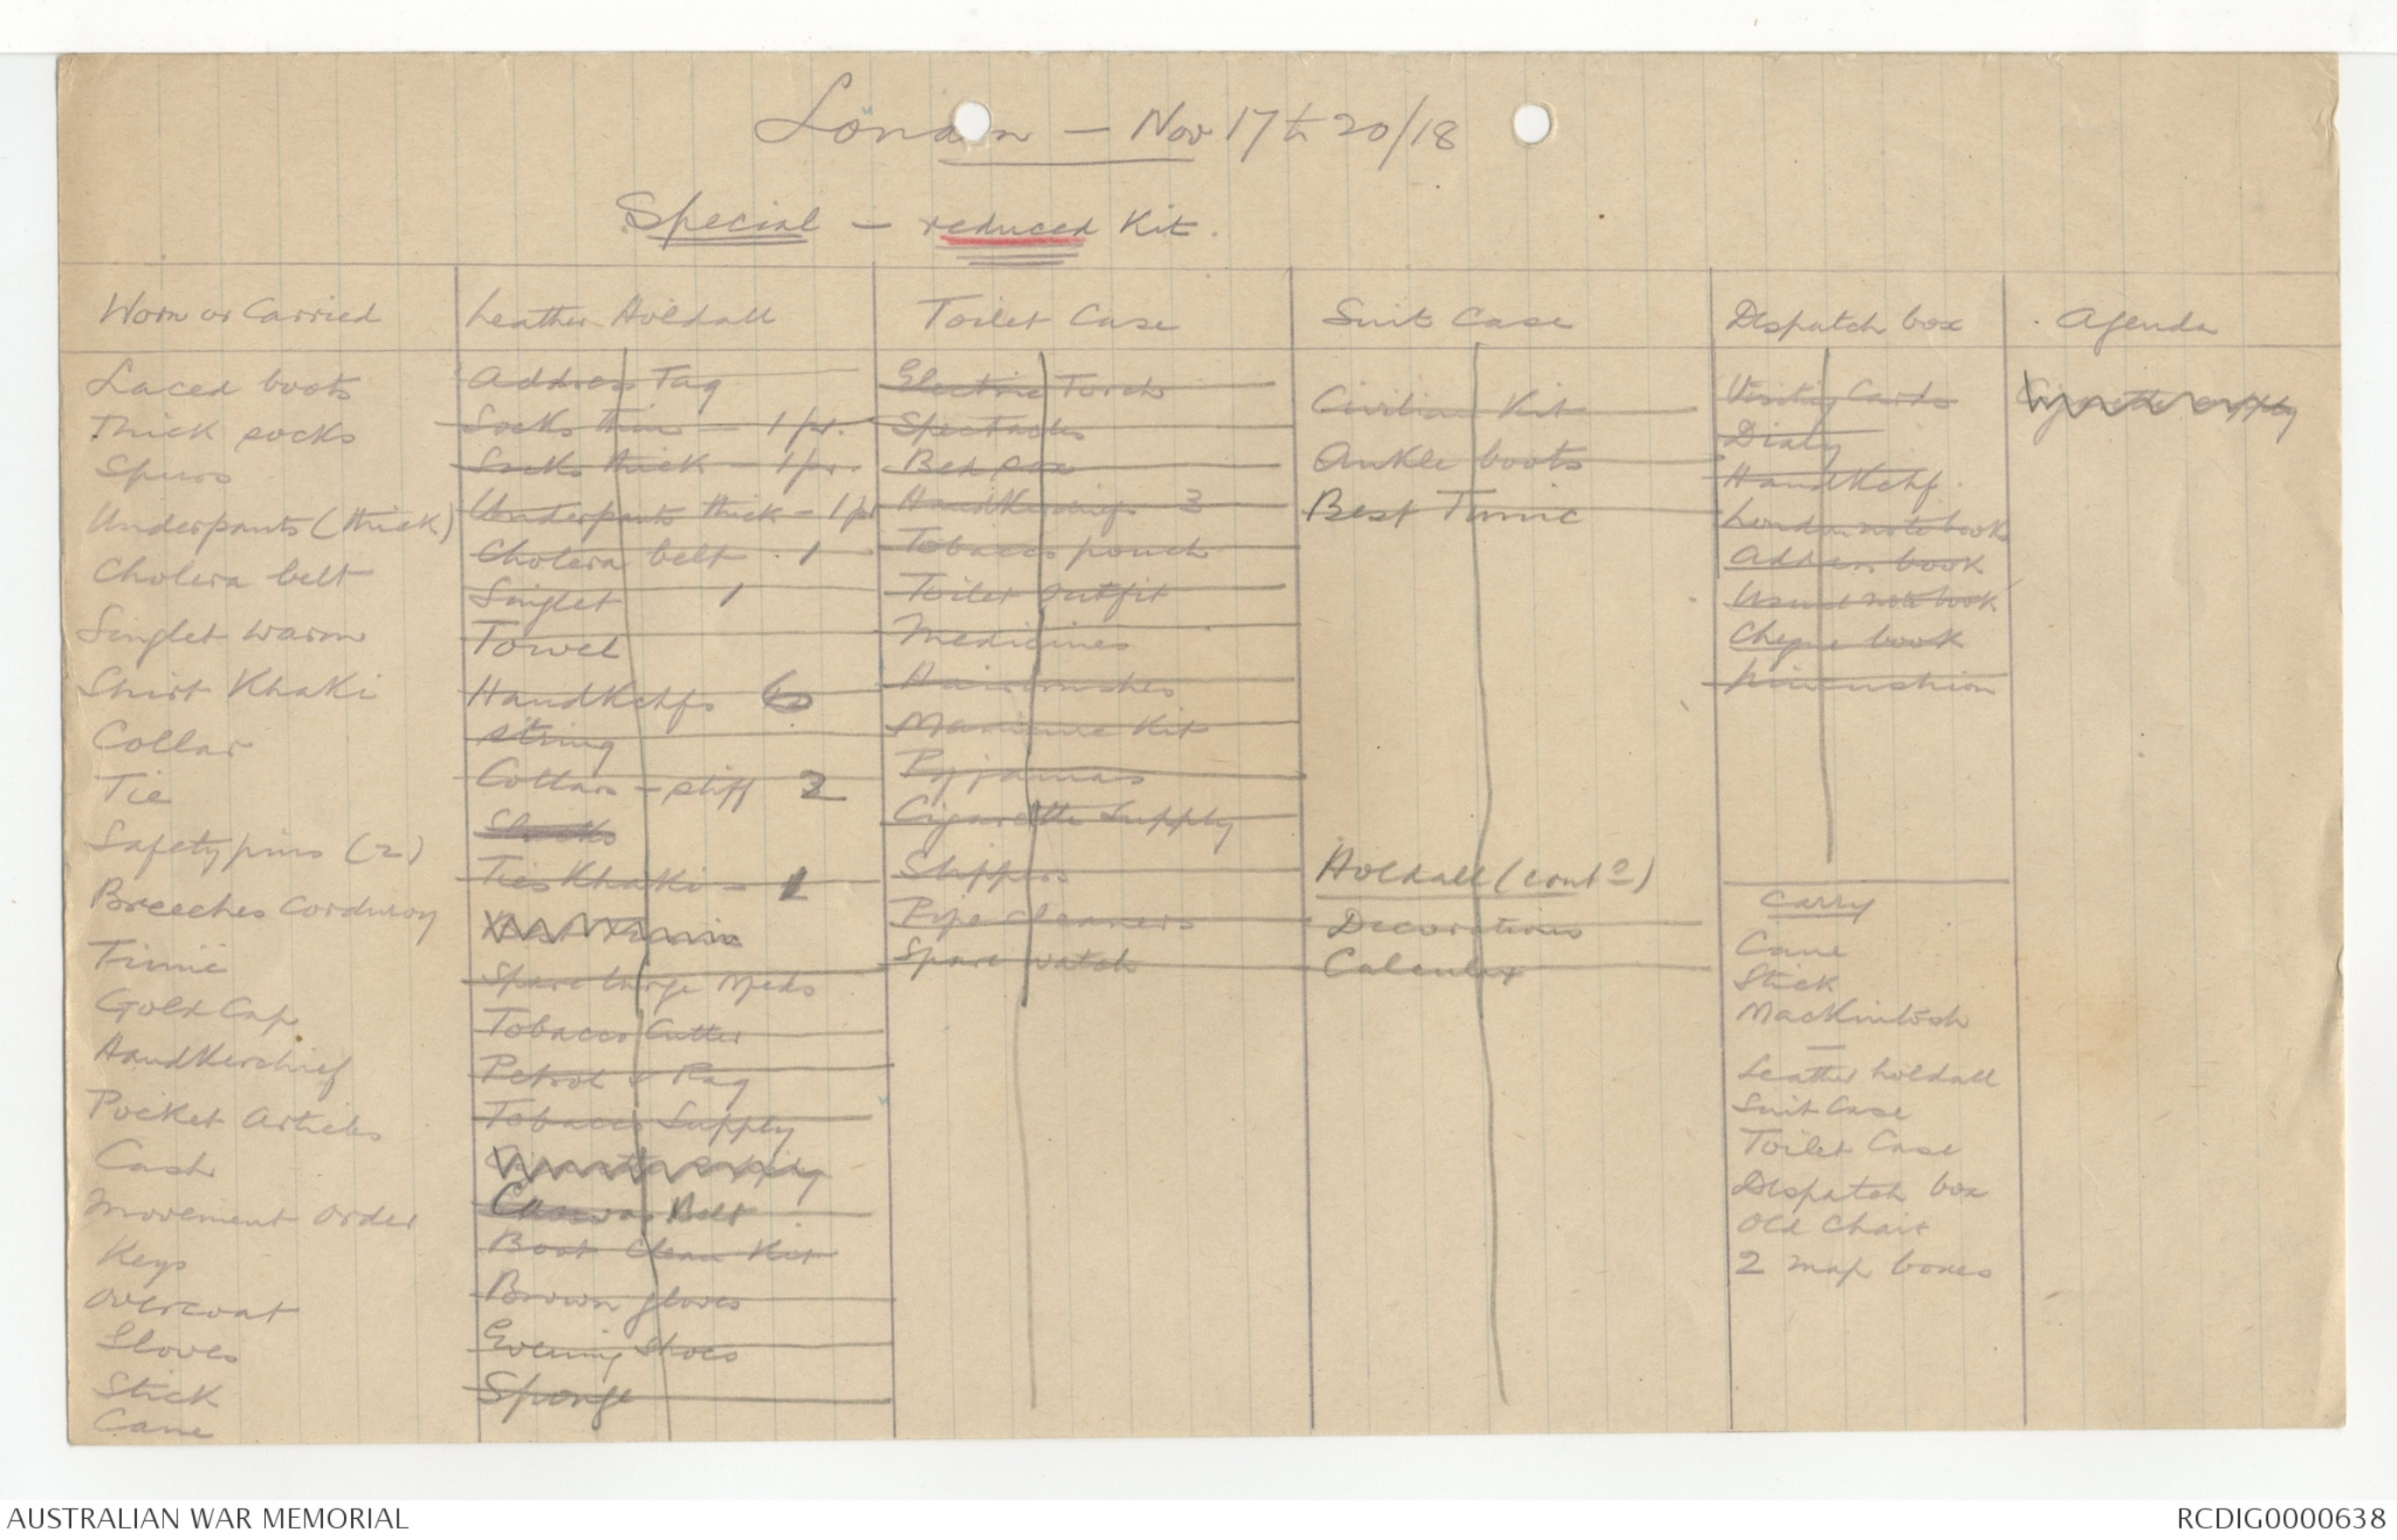 London - Nov 17 to 20/18
Special - reduced Kit.
Worn or Carried
Laced boots
Thick socks
Spurs
Underpants (thick)
Cholera belt
Singlet warm
Shirt Khaki
Collar
Tie
Safety pins (2)
Breeches Corduroy
Tunic
Gold Cap
Handkerchief
Pocket Articles
Cash
Movement Order
Keys
Overcoat
Gloves
Stick
Cane
Leather Holdall
Address Tag
Socks thin - 1 pr.
Socks thick - 1 pr.
Underpants thick - 1 pr
Cholera belt . 1
Singlet 1
Towel
HandKchfs 6
String
Collars - stiff 2
Slacks
Ties Khaki - 1
Spare large
Tobacco Cutter
Petrol & Rag
Tobacco Supply
Cigarette Supply
Canvas Belt
Boot Clean Kit
Brown gloves
Evening Shoes
Sponge
Toilet Case
Electric Torch
Spectacles
Bed sox
HandKerchiefs 3
Tobacco pouch
Toilet outfit
Medicines
Hairbrushes
Manicure Kit
Pyjamas
Cigarette Supply
Slippers
Pipe Cleaners
Spare watch
Suit Case
Civilian Kit
Ankle boots
Best Tunic
Holdall (contd)
Decorations
Calculex
Dispatch box
Visiting Cards
Diary
HandKchf.
London note book
Address book
Usual note book
Cheque book
Pincushion
Carry
Cane
Stick
MacKintosh
Leather holdall
Suit Case
Toilet Case
Dispatch box
Old Chair
2 map boxes
Agenda
Cigarette supply
AUSTRALIAN WAR MEMORIAL
RCDIG0000638